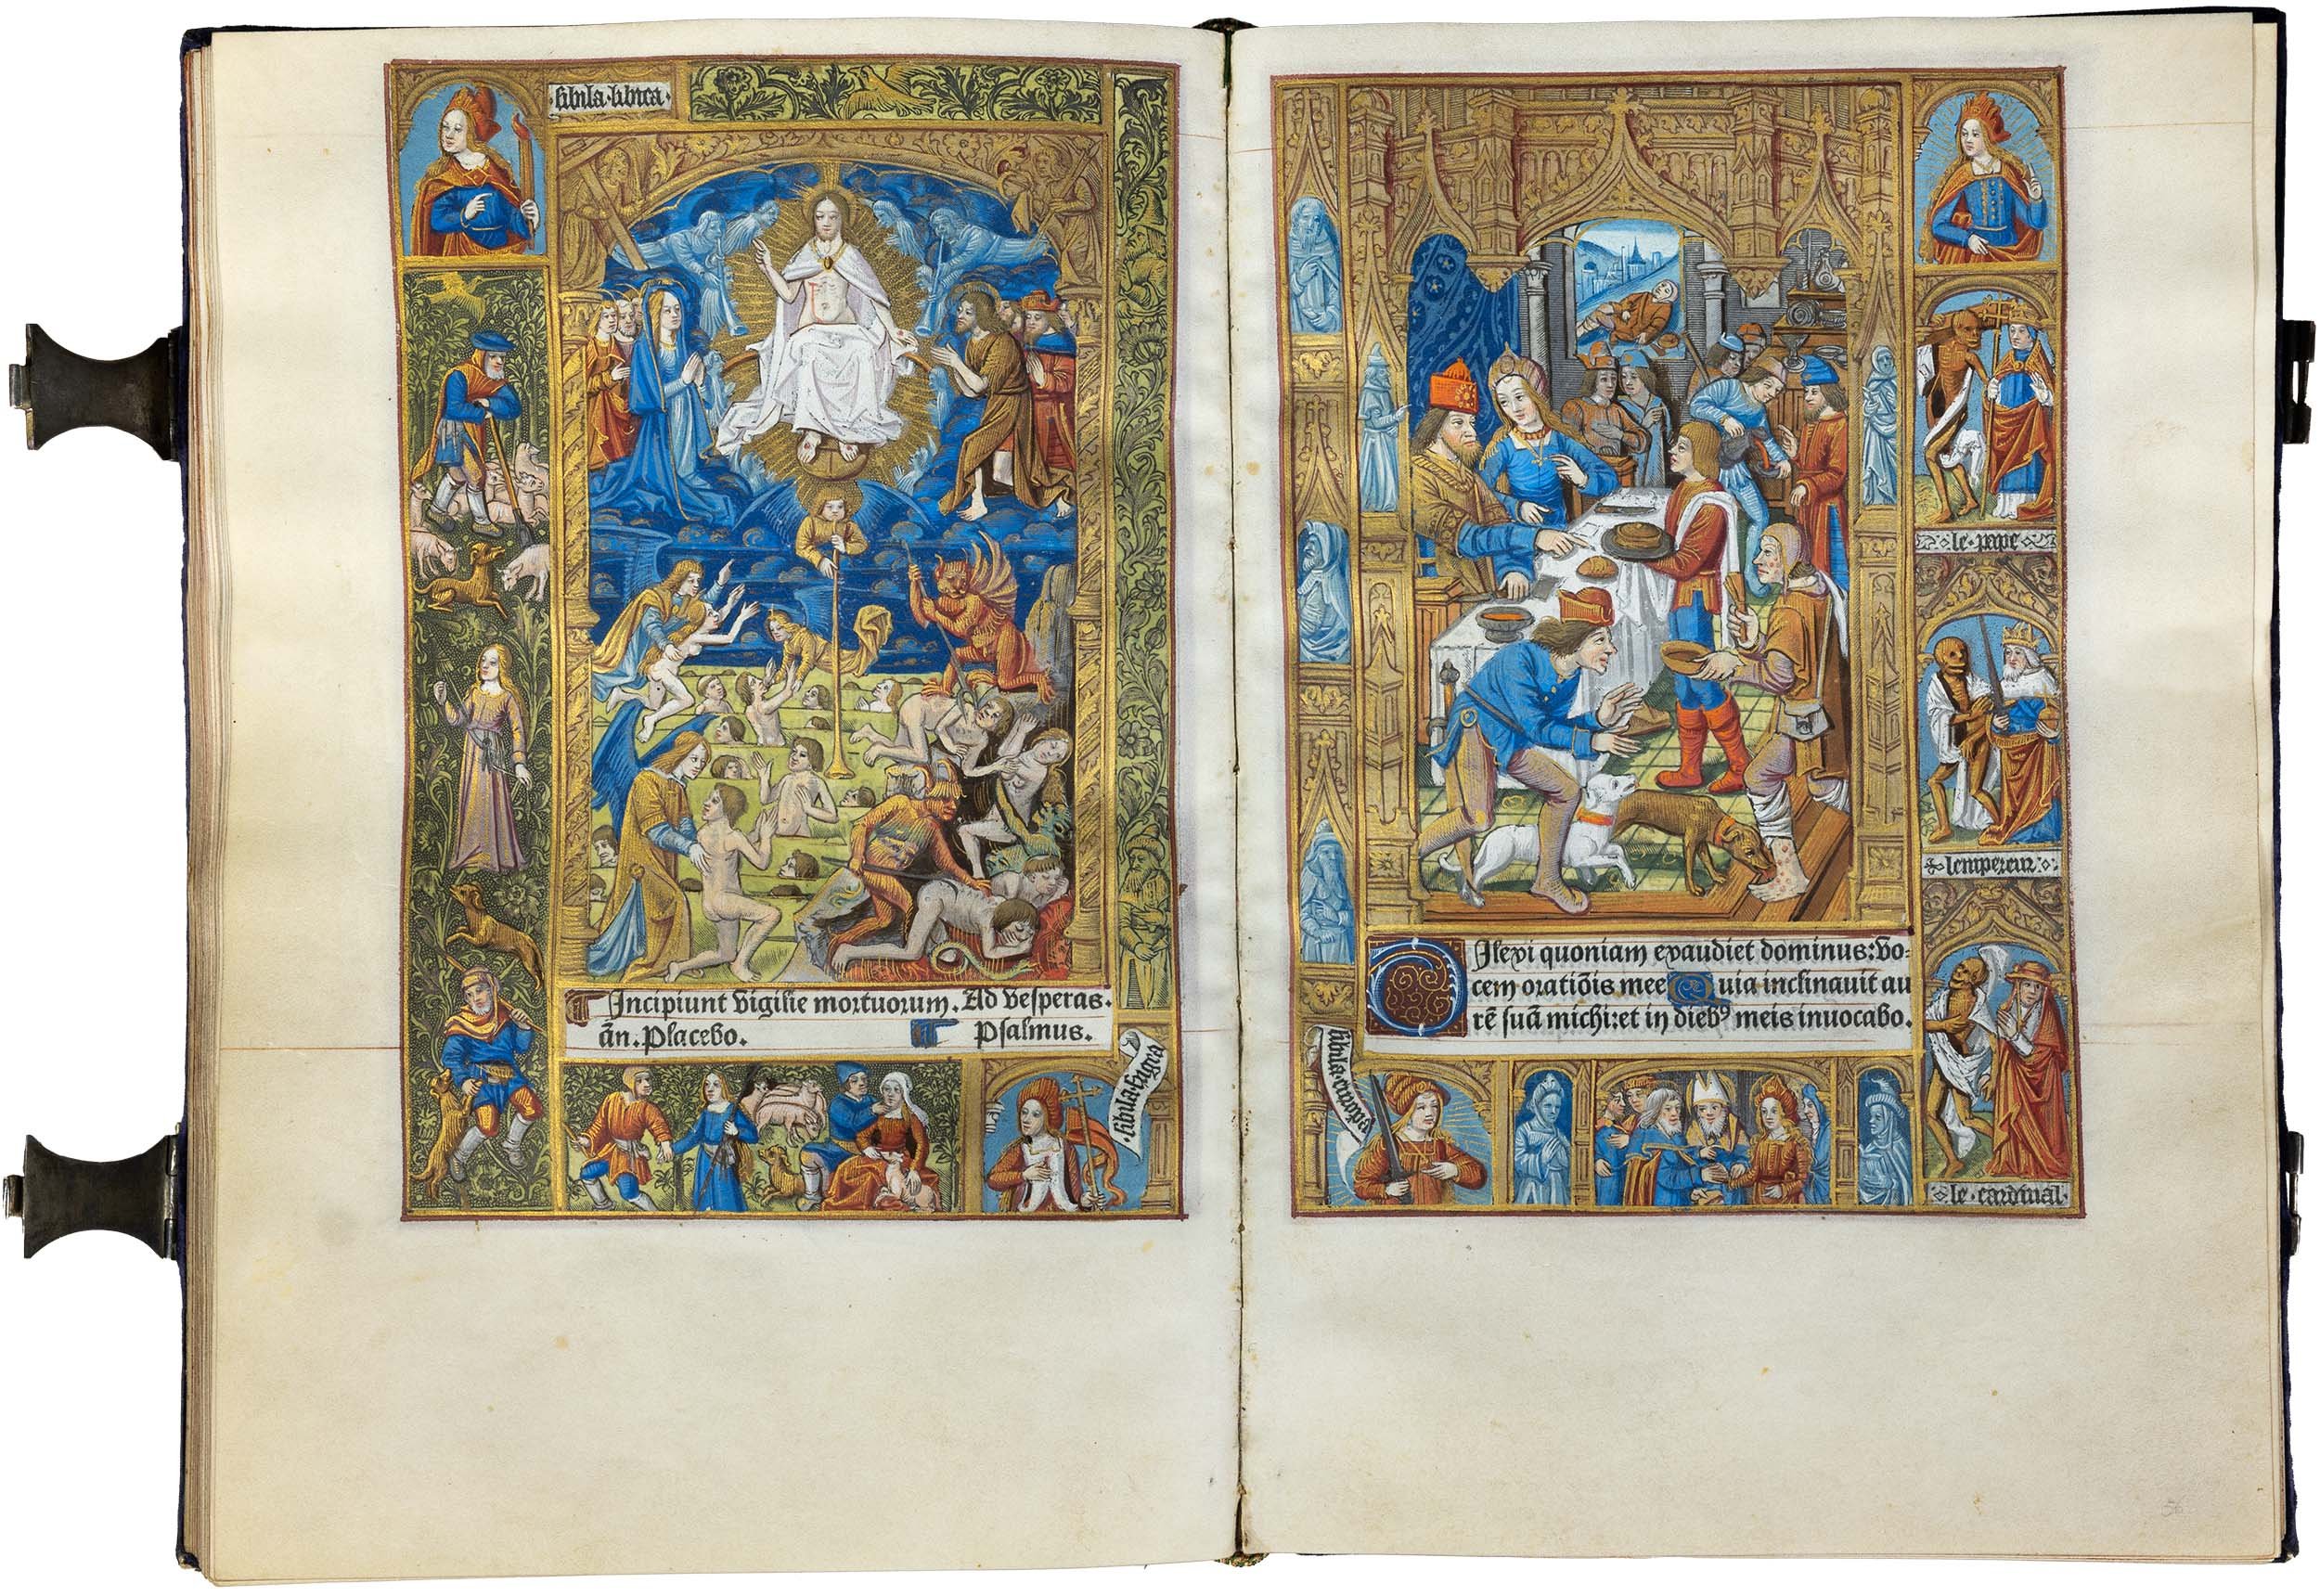 sibila libica
Incipiunt Vigilie mortuorum. Ad vesperas.
añ. Placebo. Psalmus.
sibila frigea
le pape
lempereur
Dilexi quoniam exaudiet dominus: vo-
cem oratiōis mee Quia inclinavit au
rē suā michi: et in dieb⁹ meis inuocabo.
sibila europa
le cardinal
56